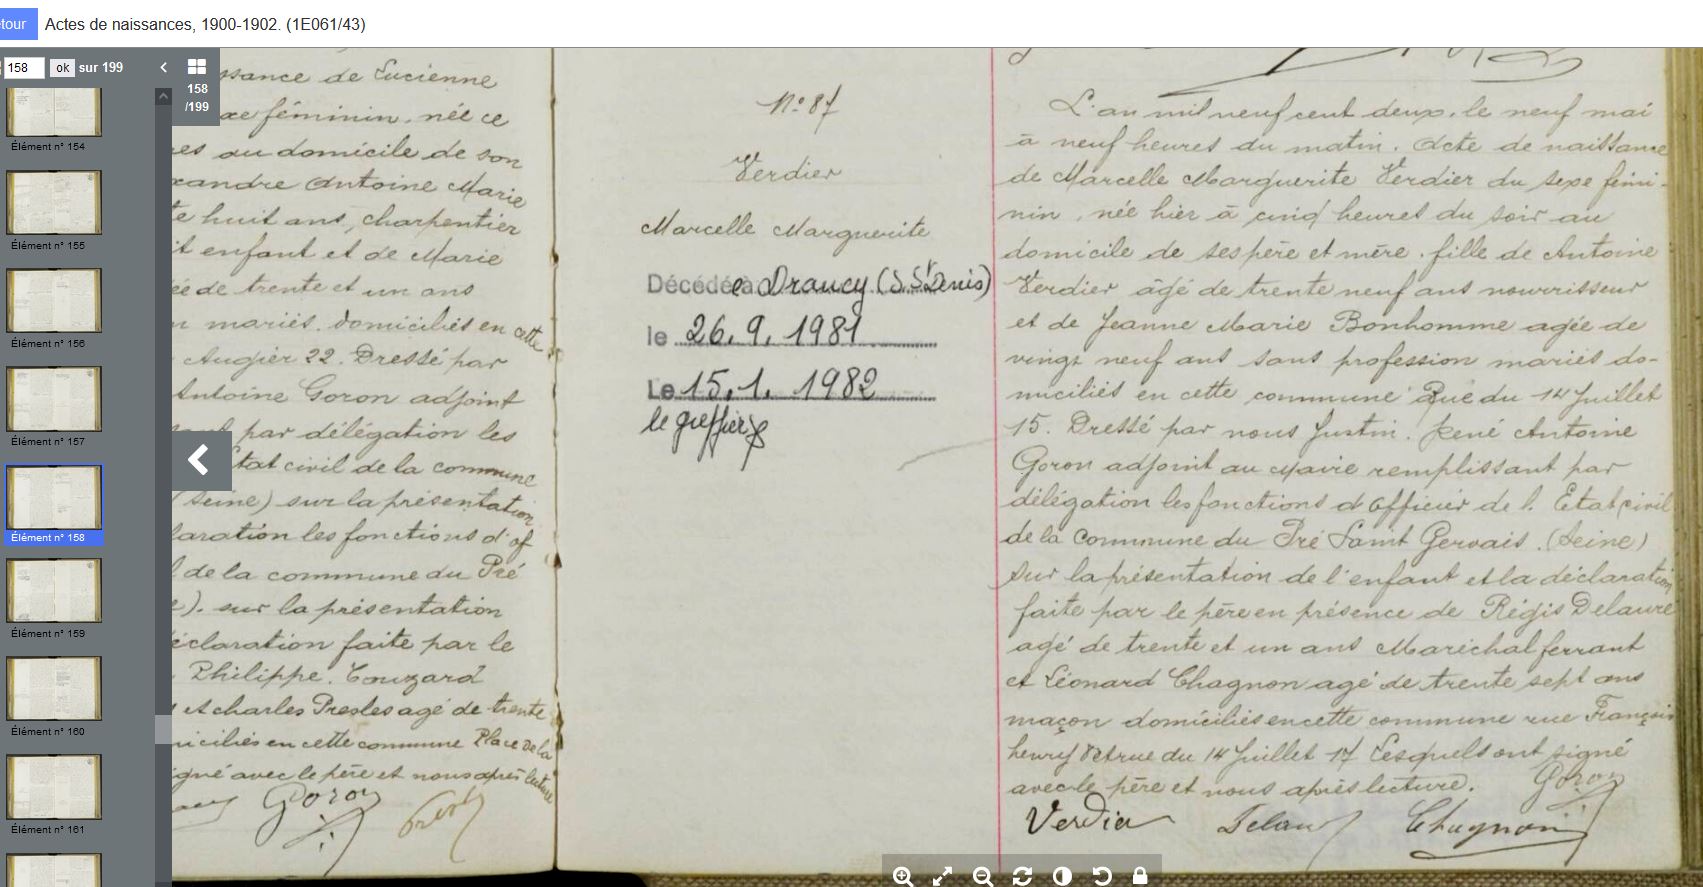 tour
Actes de naissances, 1900-1902. (1E061/43)
158 ok sur 199
158
/199
Élément n° 154
Élément n° 155
Élément n° 156
Élément n° 157
Élément n° 158
Élément n° 159
Élément n° 160
Élément n° 161
ssance de Lucienne
xe féminin, née ce
es au domicile de son
xandre Antoine Marie
te huit ans, charpentier
it enfant et de Marie
ée de trente et un ans
n mariés. domiciliés en cette
Augier 22. Dressé par
Antoine Goron adjoint
par délégation les
Etat civil de la commune
(Seine) sur la présentation
laration les fonctions d'of
de la commune du Pré
e). sur la présentation
éclaration faite par le
Philippe. Touzard
et charles Presles agé de trente
iciliés en cette commune Place de la
igné avec le père et nous après lecture
Goron
N° 87
Verdier
Marcelle Marguerite
Décédée à Drancy (S. St Denis)
le 26.9.1981
Le 15.1.1982
le greffier
L'an mil neuf cent deux, le neuf mai
à neuf heures du matin. Acte de naissance
de Marcelle Marguerite Verdier du sexe fémi-
nin, née hier à cinq heures du soir au
domicile de ses père et mère. fille de Antoine
Verdier âgé de trente neuf ans nourrisseur
et de Jeanne Marie Bonhomme agée de
vingt neuf ans sans profession mariés do-
miciliés en cette commune Rue du 14 Juillet
15. Dressé par nous Justin. René Antoine
Goron adjoint au Maire remplissant par
délégation les fonctions d'officier de l'Etat civil
de la commune du Pré Saint Gervais. (Seine)
sur la présentation de l'enfant et la déclaration
faite par le père en présence de Régis Delaure
agé de trente et un ans Maréchal ferrant
et Léonard Chagnon agé de trente sept ans
maçon domiciliés en cette commune rue François
henry et rue du 14 Juillet 17 Lesquels ont signé
avec le père et nous après lecture.
Goron
Verdier Chagnon